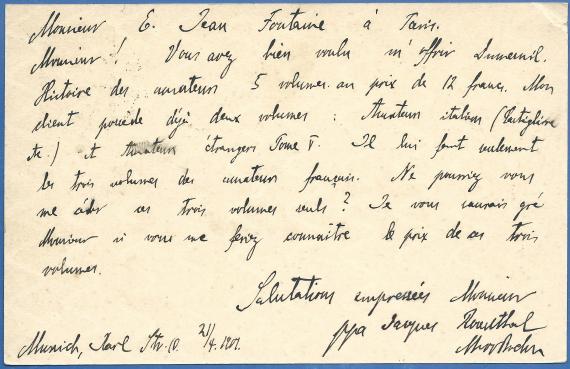 Monsieur E. Jean Fontaine à Paris.
Monsieur! Vous avez bien voulu m'offrir Dumesnil.
Histoire des amateurs 5 volumes au prix de 12 francs. Mon
client possède déjà deux volumes : Amateurs italiens (Castiglione
etc.) et Amateurs étrangers Tome V. Il lui faut seulement
les trois volumes des amateurs français. Ne pourriez vous
me céder ces trois volumes seuls? Je vous saurais gré
Monsieur si vous me feriez connaître le prix de ces trois
volumes.
Salutations empressées Monsieur
ppa Jacques Rosenthal
Munich, Karl Str. 10. 21/4. 1901.